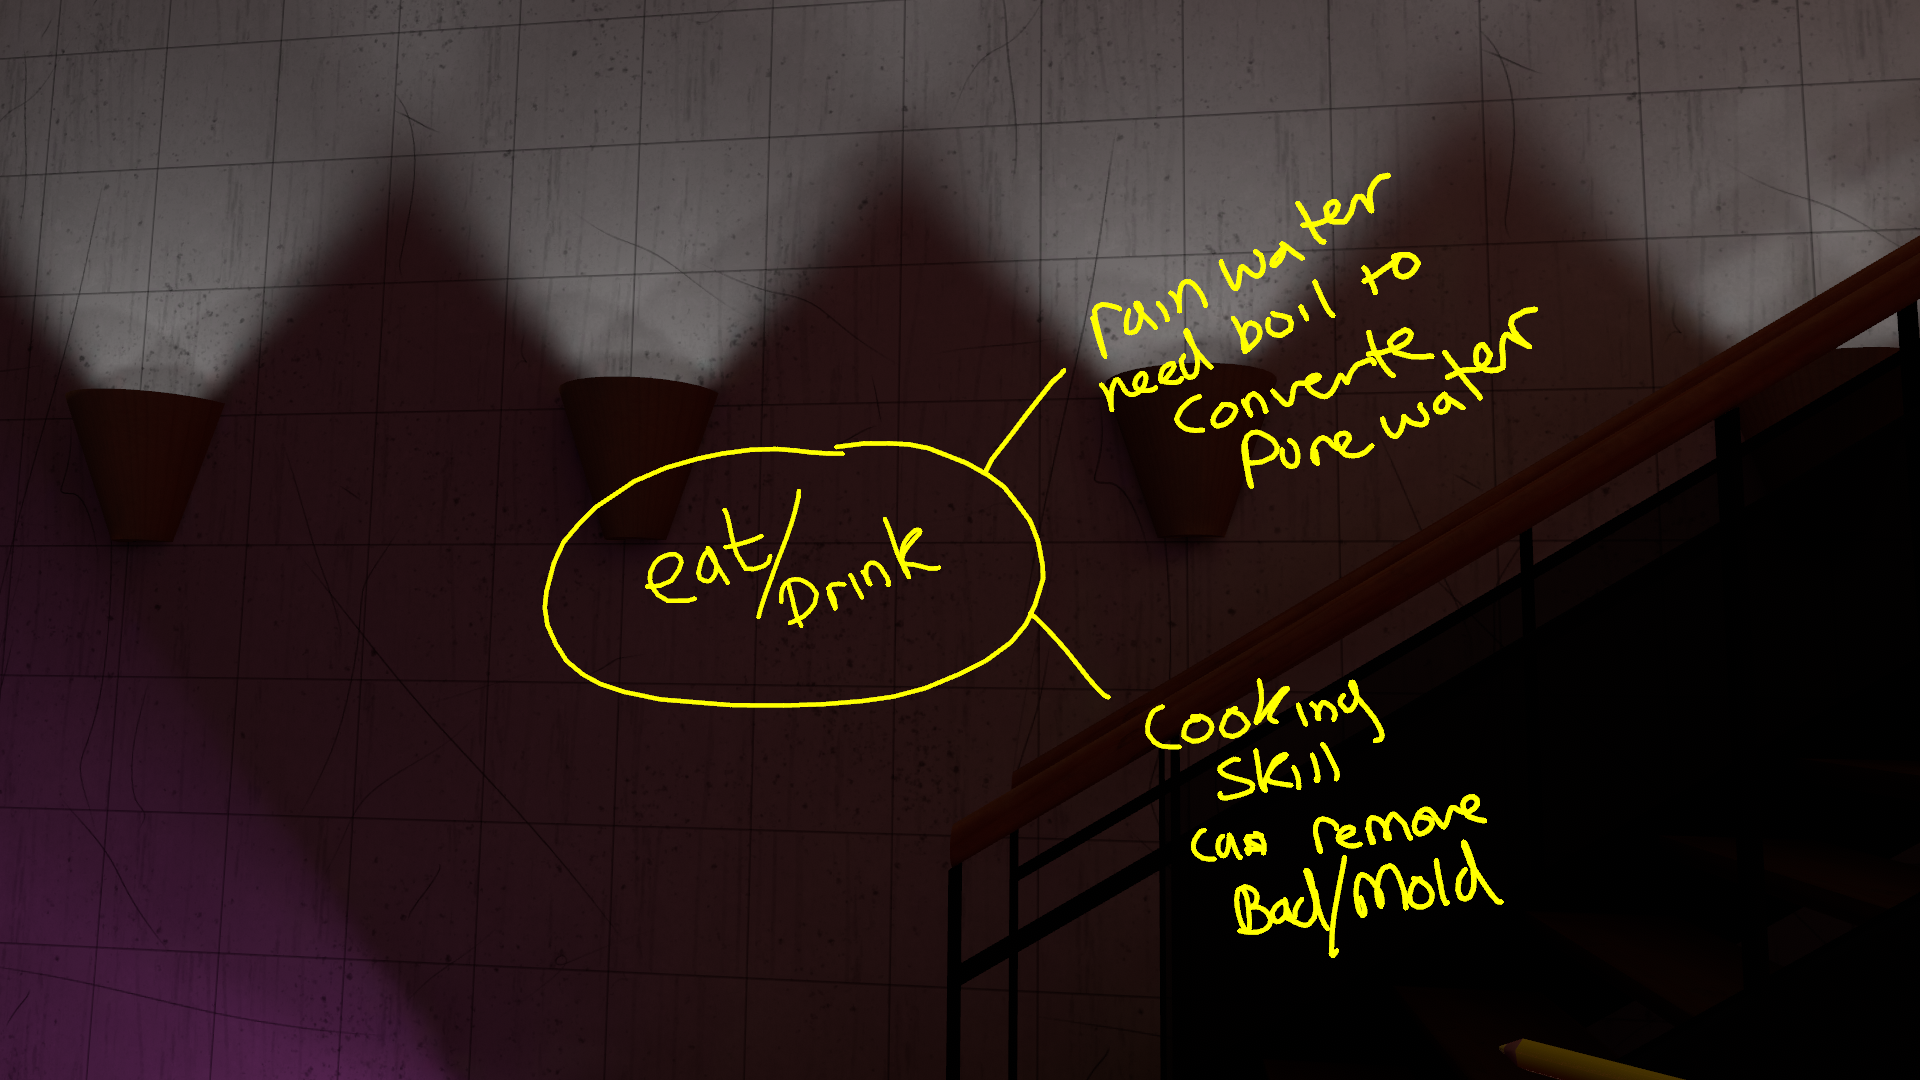 eat/Drink
rain water
need boil to
converte
Pure water
Cooking
Skill
can remove
Bad/Mold